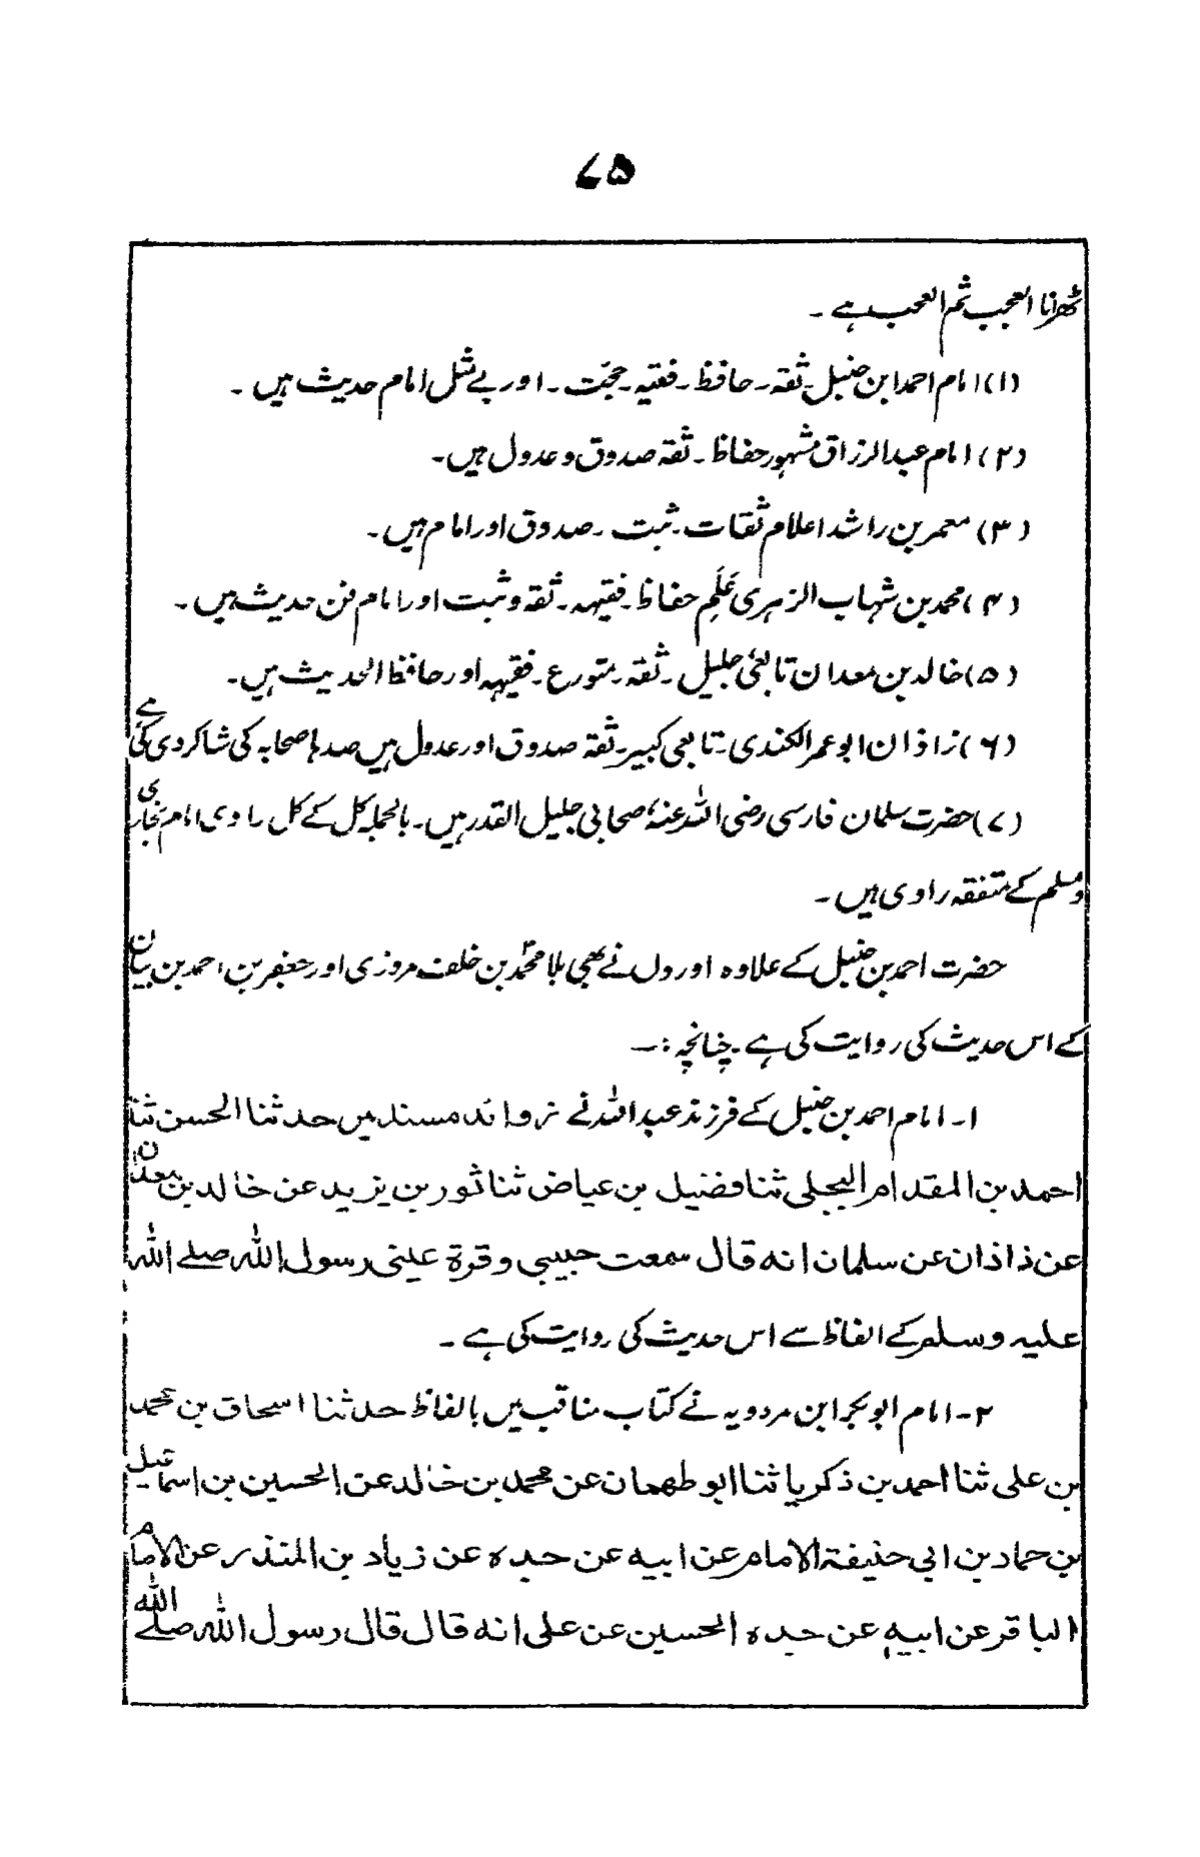 ۷۵
ٹھرنا العجب ثم العجب ہے ۔
(۱) امام احمد ابن حنبل ۔ ثقہ ۔ حافظ ۔ فقیہ ۔ حجّت ۔ اور بے مثل امام حدیث ہیں ۔
(۲) امام عبد الرزاق مشہور حفاظ ۔ ثقہ صدوق و عدول ہیں ۔
(۳) معمر بن راشد اعلام ثقات ۔ ثبت ۔ صدوق اور امام ہیں ۔
(۴) محمد بن شہاب الزہری عَلَمِ حفاظ ۔ فقیہہ ۔ ثقہ و ثبت اور امام فن حدیث ہیں ۔
(۵) خالد بن معدان تابعیٔ جلیل ۔ ثقہ ۔ متورع ۔ فقیہہ اور حافظ الحدیث ہیں ۔
(۶) زاذان ابو عمر الکندی ۔ تابعی کبیر ۔ ثقہ صدوق اور عدول ہیں صدہا صحابہ کی شاگردی کی ہے
(۷) حضرت سلمان فارسی رضی اللہ عنہٗ صحابی جلیل القدر ہیں ۔ بالجملہ کل کے کل راوی امام بخاری
و مسلم کے متفقہ راوی ہیں ۔
حضرت احمد بن حنبل کے علاوہ اوروں نے بھی بلا محمدؐ بن خلف مروزی اور جعفر بن احمد بن بیان
کے اس حدیث کی روایت کی ہے ۔ چنانچہ :۔
۱۔ امام احمد بن حنبل کے فرزند عبد اللہ نے زوائد مسند میں حدثنا الحسن ثنا
احمد بن المقدام العجلی ثنا فضیل بن عیاض ثنا ثور بن یزید عن خالد بن معدان
عن ذاذان عن سلمان انہ قال سمعت حبیبی وقرة عینی رسول اللہ صلے اللہ
علیہ وسلم کے الفاظ سے اس حدیث کی روایت کی ہے ۔
۲۔ امام ابو بکر ابن مردویہ نے کتاب مناقب میں بالفاظ حدثنا اسحاق بن محمد
بن علی ثنا احمد بن ذکریا ثنا ابو طھمان عن محمد بن خالد عن الحسین بن اسماعیل
بن حماد بن ابی حنیفة الامام عن ابیہ عن جدہ عن زیاد بن المنذر عن الامام
الباقر عن ابیہ عن جدہ الحسین عن علی انہ قال قال رسول اللہ صلے اللہ